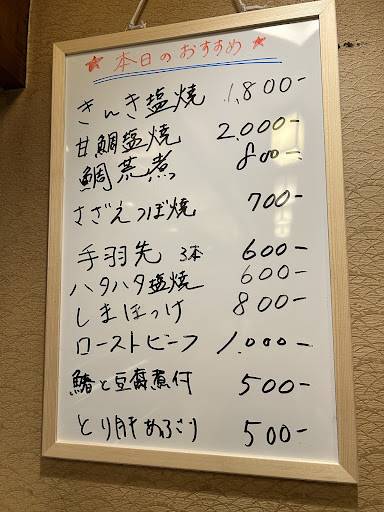 ★本日のおすすめ★
きんき塩焼 1,800-
甘鯛塩焼 2,000-
鯛荒煮 800-
さざえつぼ焼 700-
手羽先 3本 600-
ハタハタ塩焼 600-
しまほっけ 800-
ローストビーフ 1,000-
鰆と豆腐煮付 500-
とり肝あぶり 500-